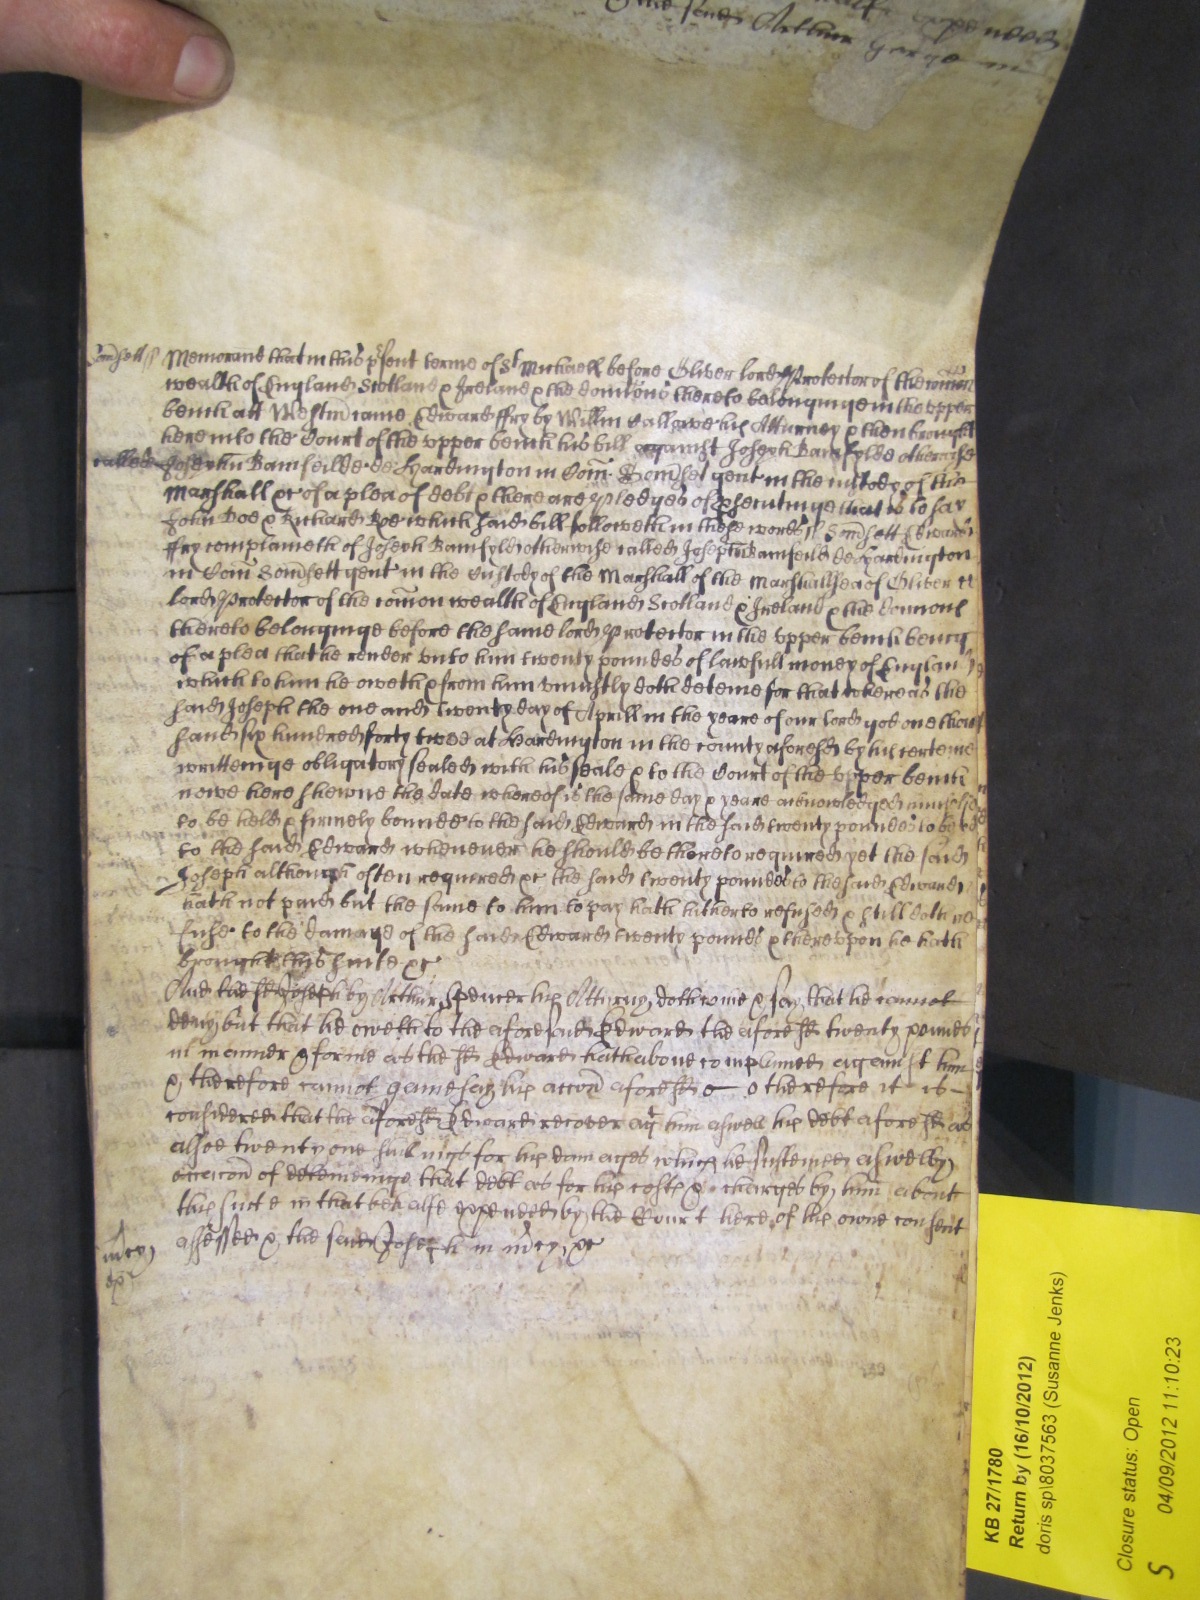 expended
the said Arthur George in
Somsett ss Memorand that in this psent terme of St Michaell before Oliver lord Protector of the comon
wealth of England Scotland & Ireland & the domions thereto belonginge in the upper
bench att Westm came Edward ffry by Willm Callowe his Atturney & then brought
here into the Court of the upper bench his bill against Joseph Bamfylde otherwise
called Joseph Bamfeilde de Hardington in Com Somset gent in the custody of the
Marshall &c of a plea of debt & there are pledges of psecutinge that is to say
John Doe & Richard Roe which said bill followeth in these words ss Somsett Edward
ffry complaineth of Joseph Bamfyld otherwise called Joseph Bamfeild de Hardington
in Com Somsett gent in the Custody of the Marshall of the Marshallsea of Oliver
lord Protector of the comon wealth of England Scotland & Ireland & the domions
thereto belonginge before the same lord Protector in the upper bench beinge
of a plea that he render unto him twenty poundes of lawfull money of England
which to him he oweth & from him uniustly doth deteine for that whereas the
said Joseph the one and twenty day of Aprill in the yeare of our lord god one thou
sand six hundred forty twoe at Hardington in the county aforesd by his certeine
writteinge obligatory sealed with his seale & to the Court of the upper bench
nowe here shewne the date whereof is the same day & yeare acknowledged himselfe
to be held & firmely bounde to the said Edward in the said twenty pounds to be
to the said Edward whenever he should be thereto required yet the said
Joseph although often required &c the said twenty poundes to the said Edward
hath not paid but the same to him to pay hath hitherto refused & still doth re
fuse to the damage of the said Edward twenty pounds & thereupon he hath
brought this suite &c
And the sd Joseph by Arthur Spencer his Atturny doth come & say that he cannot
deny but that he oweth to the aforesaid Edward the aforesd twenty pounds
in manner & forme as the sd Edward hath above complained against him
& therefore cannot gainesay his accon aforesd therefore it is
considered that the aforesd Edward recover agt him aswell his debt aforesd as
alsoe twenty one shillings for his damages which he susteined aswell by
occacon of deteineinge that debt as for his costs & charges by him about
this suite in that behalfe expended by the Court here of his owne consent
assessed & the said Joseph in mcy &c
mcy
KB 27/1780
Return by (16/10/2012)
doris sp\8037563 (Susanne Jenks)
Closure status: Open
S 04/09/2012 11:10:23